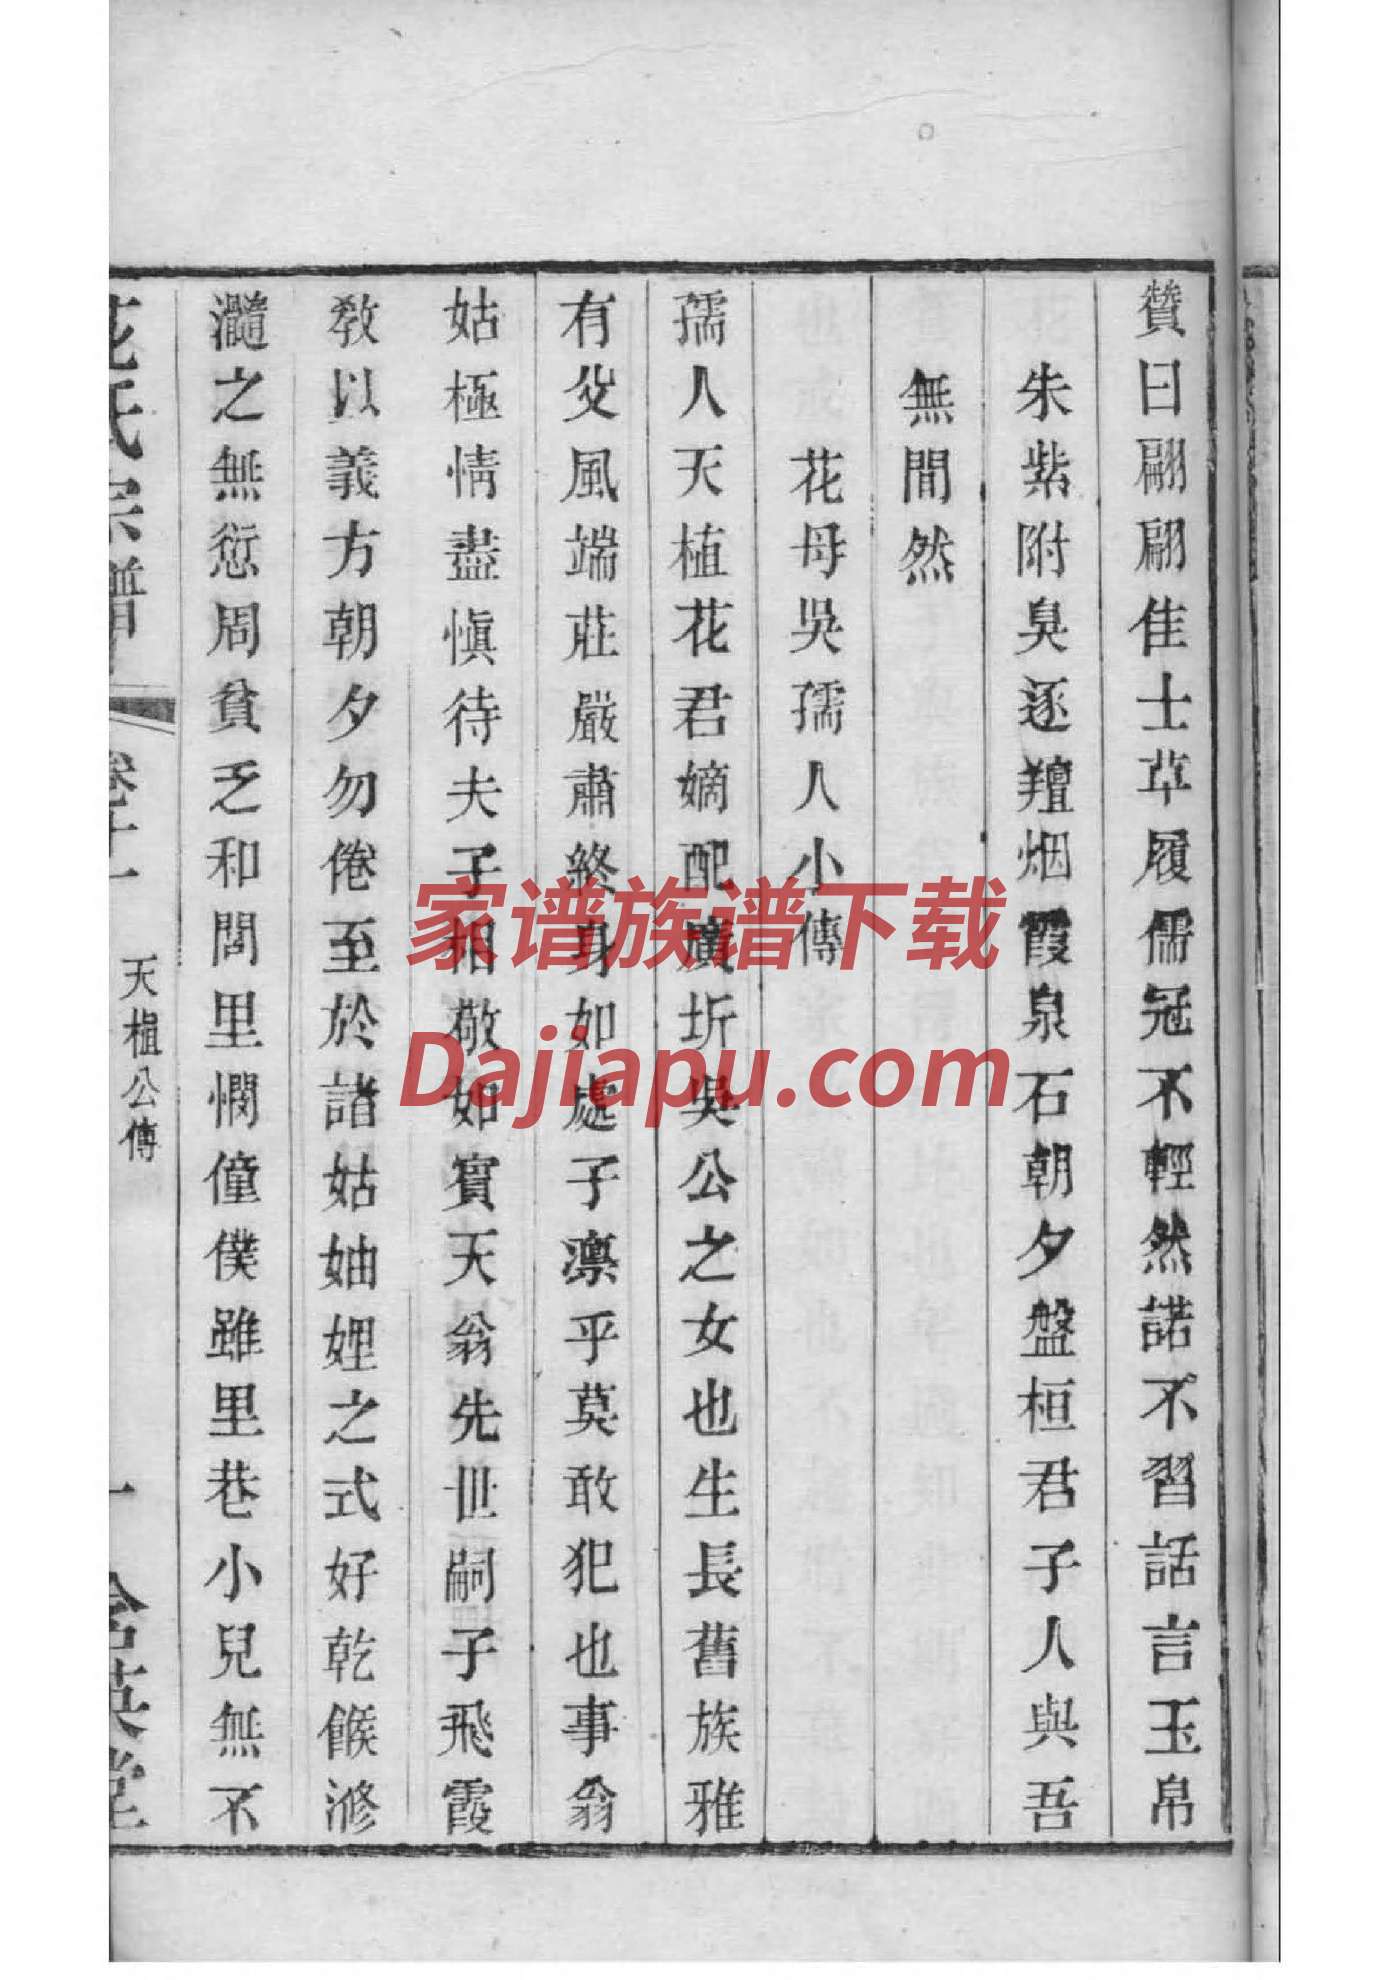 贊曰翩翩佳士草履儒冠不輕然諾不習話言玉帛
朱紫附臭逐羶烟霞泉石朝夕盤桓君子人與吾
無間然
花母吳孺人小傳
孺人天植花君嫡配廣圻吳公之女也生長舊族雅
有父風端莊嚴肅終身如處子凛乎莫敢犯也事翁
姑極情盡愼待夫子相敬如賓天翁先世嗣子飛霞
教以義方朝夕勿倦至於諸姑妯娌之式好乾餱滫
瀡之無愆周貧乏和閭里憫僮僕雖里巷小兒無不
花氏宗譜
卷十一
天植公傳
一
含英堂
家谱族谱下载
Dajiapu.com